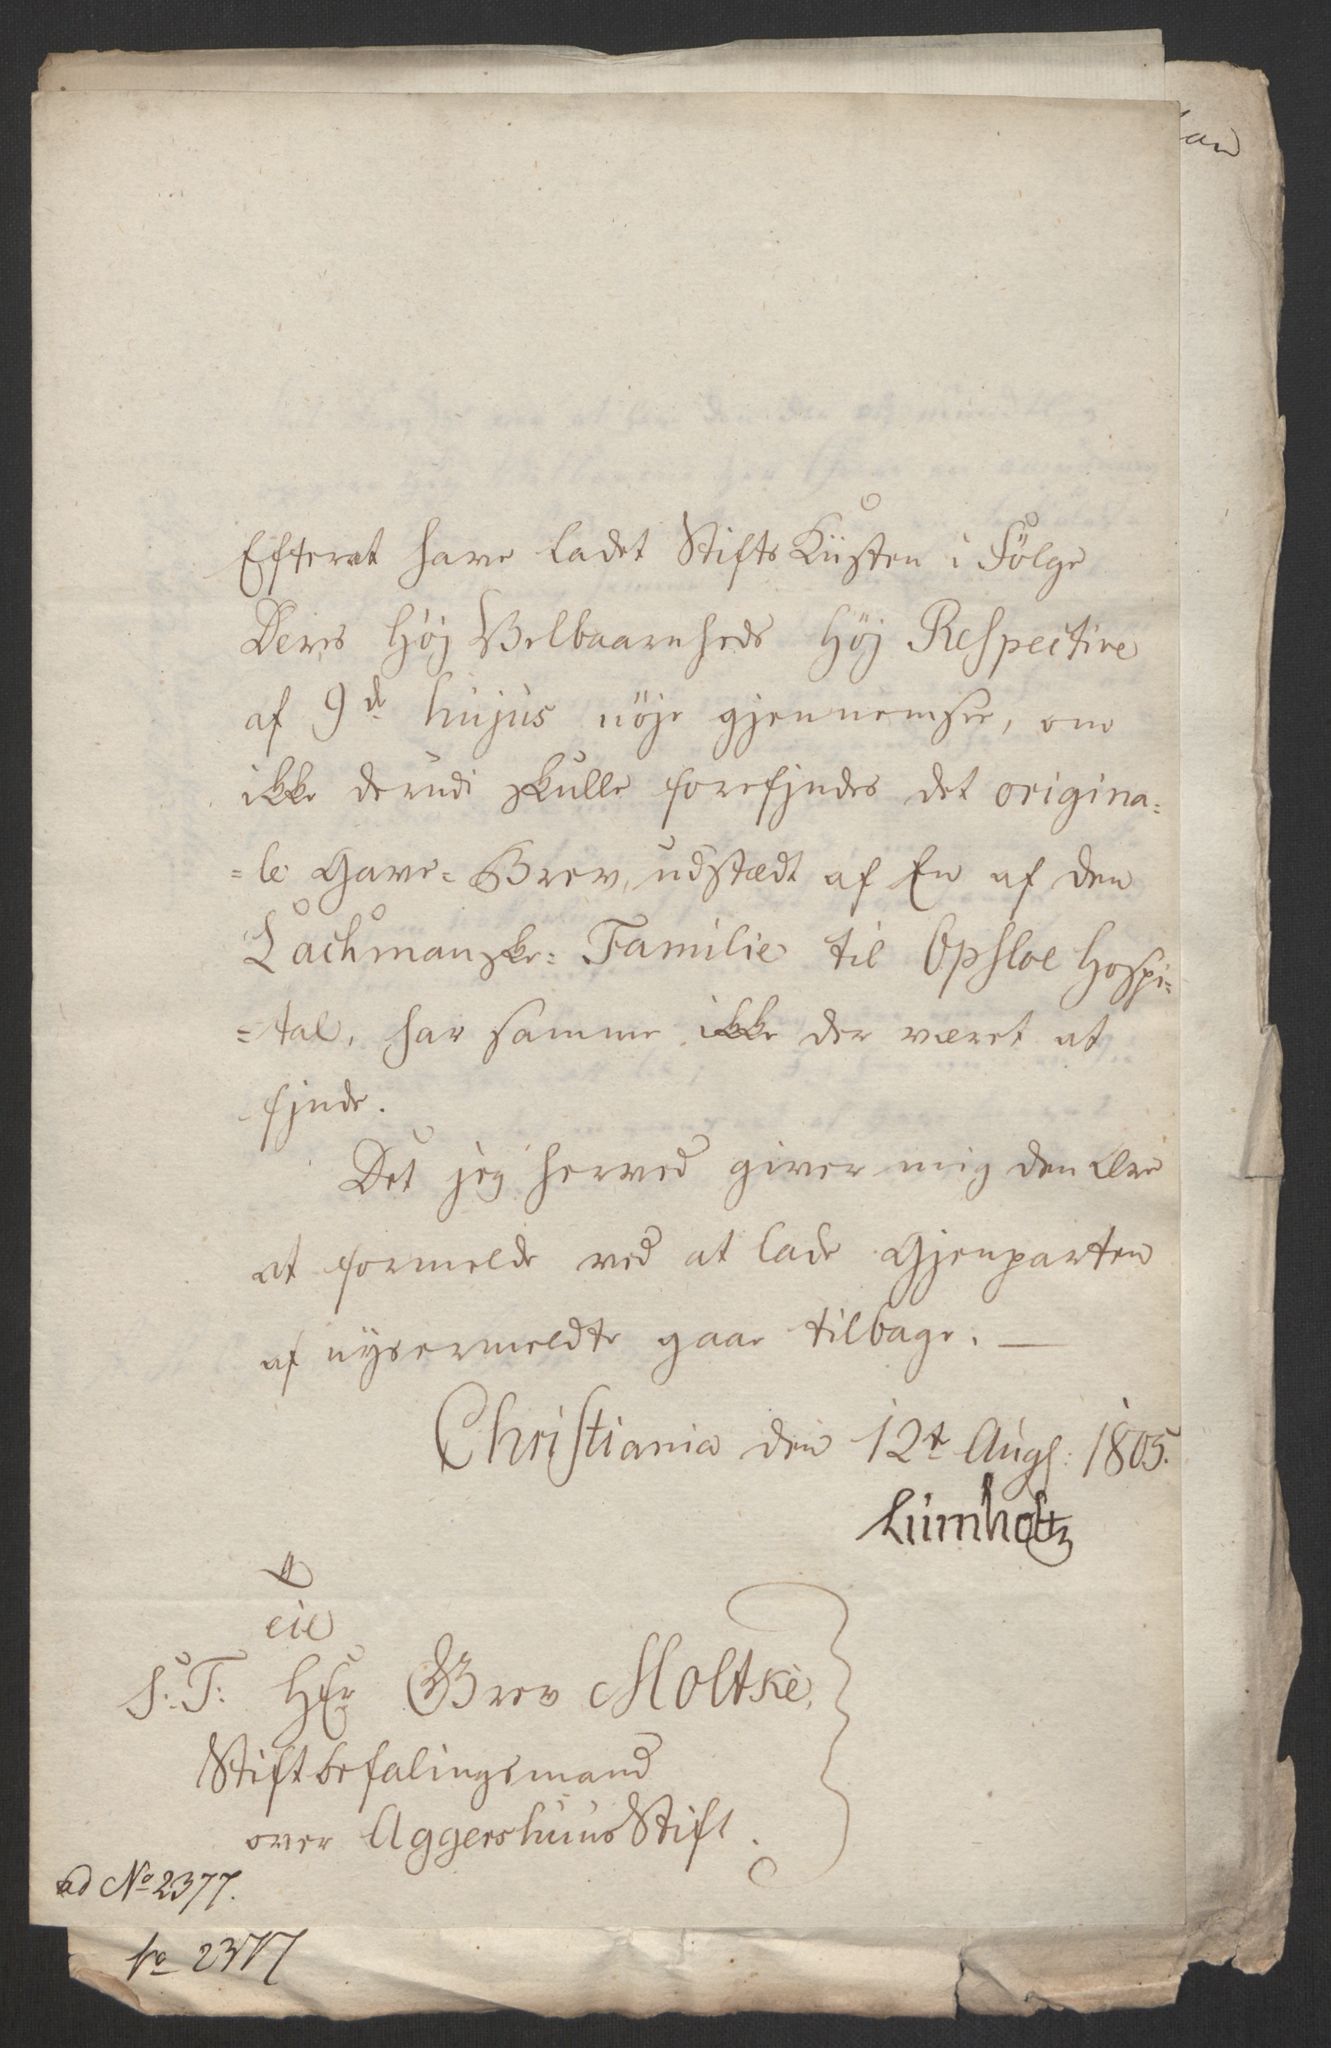 Efterat have ladet Stifts Kiisten i Følge
Deres Høj Velbaarnheds Høj Respective
af 9de hujus nøje gjennemsee, om
ikke derudi skulle forefindes det origina=
=le Gave=Brev, udstædt af En af den
Lachmanske=Familie til Opsloe Hospi=
=tal, har samme ikke der været at
finde.
Det jeg herved giver mig den Ære
at formelde ved at lade Gjenparten
af nysermeldte gaae tilbage. —
Christiania den 12t Augs: 1805.
Lumholtz
S: T: HEr Grev Moltke,
Stiftbefalingsmand
over Aggershuus Stift.
ad No 2377.
No 2377